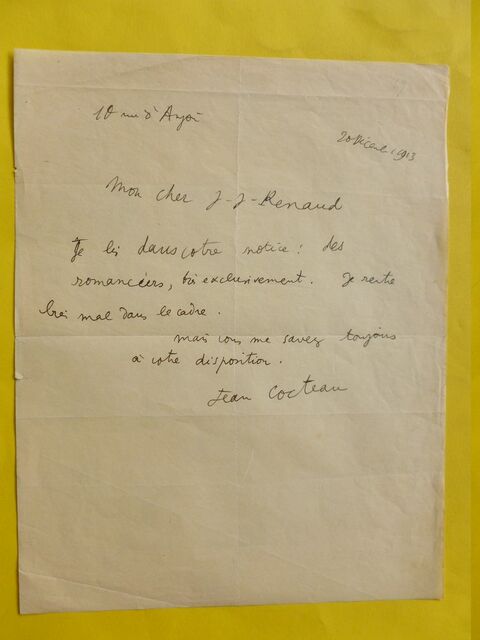 10 rue d'Anjou
20 Décembre 1913
Mon cher J-J-Renaud
Je lis dans votre notice : des
romanciers, très exclusivement. Je rentre
très mal dans le cadre.
mais vous me savez toujours
à votre disposition.
Jean Cocteau